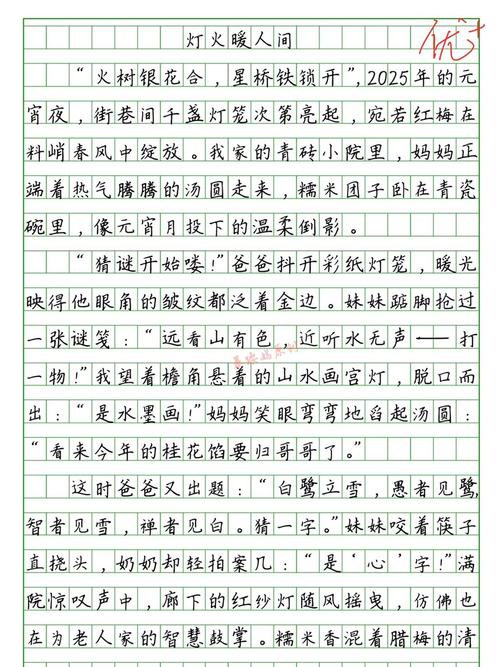 灯火暖人间
优+
“火树银花合，星桥铁锁开”，2025年的元
宵夜，街巷间千盏灯笼次第亮起，宛若红梅在
料峭春风中绽放。我家的青砖小院里，妈妈正
端着热气腾腾的汤圆走来，糯米团子卧在青瓷
碗里，像元宵月投下的温柔倒影。
“猜谜开始喽！”爸爸抖开彩纸灯笼，暖光
映得他眼角的皱纹都泛着金边。妹妹踮脚抢过
一张谜笺：“远看山有色，近听水无声——打
一物！”我望着檐角悬着的山水画宫灯，脱口而
出：“是水墨画！”妈妈笑眼弯弯地舀起汤圆：
“看来今年的桂花馅要归哥哥了。”
这时爸爸又出题：“白鹭立雪，愚者见鹭，
智者见雪，禅者见白。猜一字。”妹妹咬着筷子
直挠头，奶奶却轻拍案几：“是‘心’字！”满
院惊叹声中，廊下的红纱灯随风摇曳，仿佛也
在为老人家的智慧鼓掌。糯米香混着腊梅的清